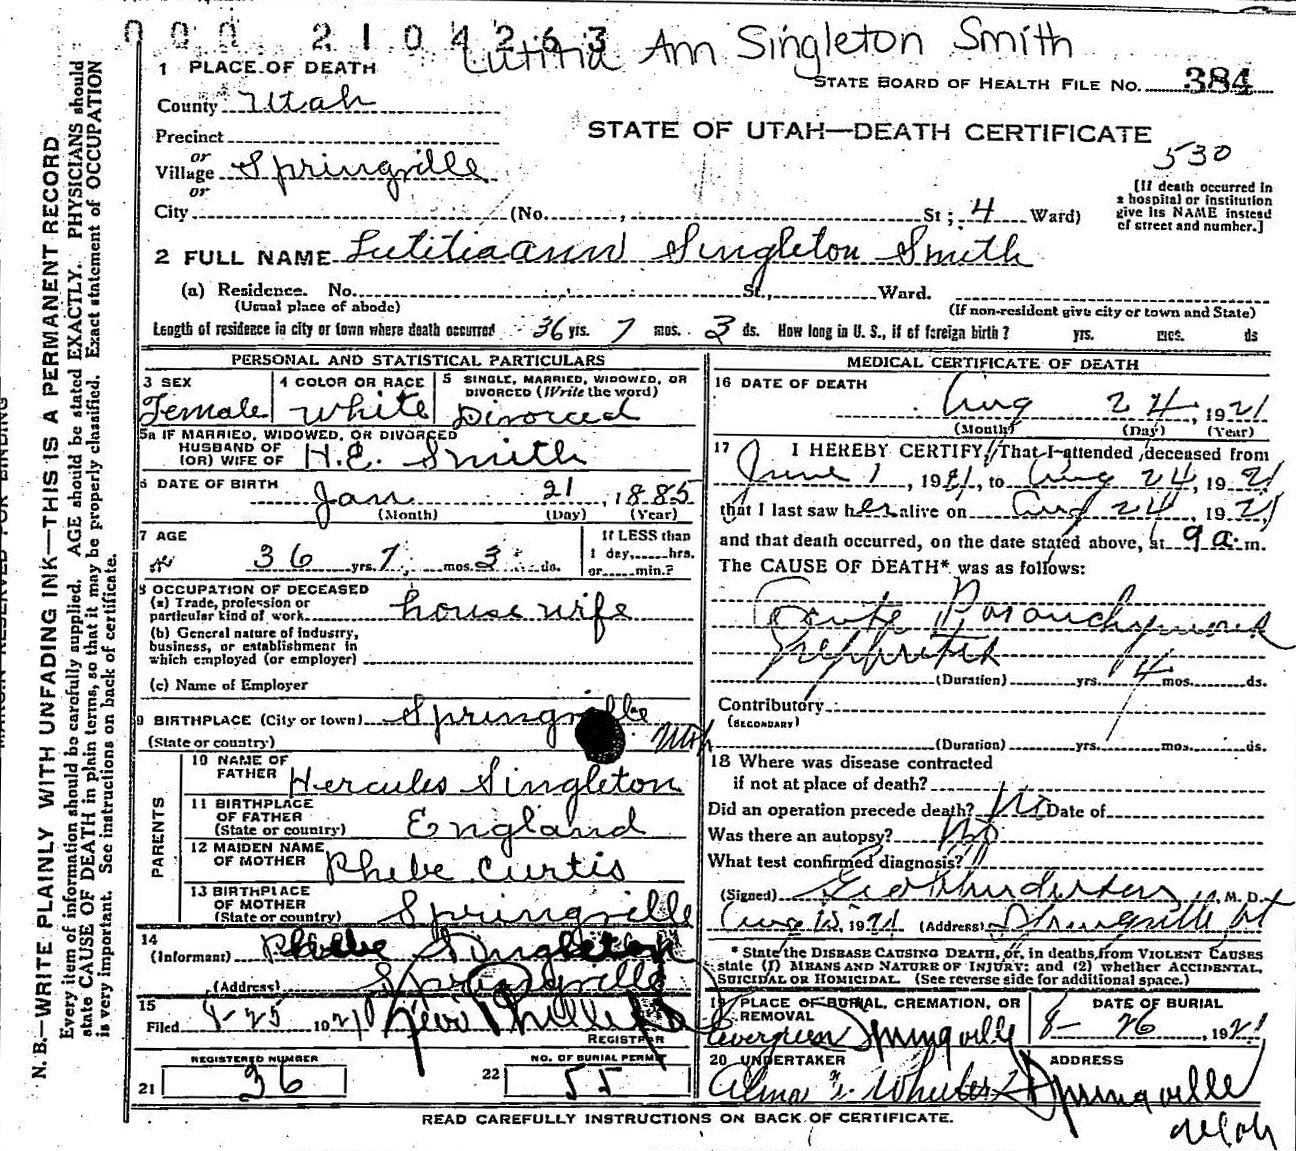 000 2104263
Lutitia Ann Singleton Smith
1 PLACE OF DEATH
STATE BOARD OF HEALTH FILE NO. 384
County Utah
STATE OF UTAH—DEATH CERTIFICATE
Precinct
530
or
Village Springville
or
[If death occurred in
a hospital or institution
give its NAME instead
of street and number.]
City (No. , St; 4 Ward)
2 FULL NAME Lutitia ann Singleton Smith
(a) Residence. No. St., Ward.
(Usual place of abode) (If non-resident give city or town and State)
Length of residence in city or town where death occurred 36 yrs. 7 mos. 3 ds. How long in U. S., if of foreign birth? yrs. mos. ds
PERSONAL AND STATISTICAL PARTICULARS
3 SEX
Female
4 COLOR OR RACE
White
5 SINGLE, MARRIED, WIDOWED, OR
DIVORCED (Write the word)
Divorced
5a IF MARRIED, WIDOWED, OR DIVORCED
HUSBAND OF
(OR) WIFE OF H.E. Smith
6 DATE OF BIRTH
Jan 21, 1885
(Month) (Day) (Year)
7 AGE
36 yrs. 7 mos. 3 ds.
If LESS than
1 day, hrs.
or min.?
8 OCCUPATION OF DECEASED
(a) Trade, profession or
particular kind of work house wife
(b) General nature of industry,
business, or establishment in
which employed (or employer)
(c) Name of Employer
9 BIRTHPLACE (City or town) Springville
(State or country) Utah
PARENTS
10 NAME OF
FATHER Hercules Singleton
11 BIRTHPLACE
OF FATHER
(State or country) England
12 MAIDEN NAME
OF MOTHER Phebe Curtis
13 BIRTHPLACE
OF MOTHER
(State or country) Springville
14
(Informant) Phebe Singleton
(Address) Springville
15
Filed 8-25 1921
REGISTRAR
REGISTERED NUMBER
21 36
NO. OF BURIAL PERMIT
22 55
MEDICAL CERTIFICATE OF DEATH
16 DATE OF DEATH
Aug 24, 1921
(Month) (Day) (Year)
17 I HEREBY CERTIFY, That I attended deceased from
June 1, 1921, to Aug 24, 1921
that I last saw her alive on Aug 24 1921,
and that death occurred, on the date stated above, at 9 a. m.
The CAUSE OF DEATH* was as follows:
Acute
(Duration) yrs. 4 mos. ds.
Contributory
(SECONDARY)
(Duration) yrs. mos. ds.
18 Where was disease contracted
if not at place of death?
Did an operation precede death? No Date of
Was there an autopsy? No
What test confirmed diagnosis?
(Signed) M. D.
Aug 1921 (Address) Springville Ut
* State the DISEASE CAUSING DEATH, or, in deaths from VIOLENT CAUSES
state (1) MEANS AND NATURE OF INJURY; and (2) whether ACCIDENTAL,
SUICIDAL OR HOMICIDAL. (See reverse side for additional space.)
19 PLACE OF BURIAL, CREMATION, OR
REMOVAL
Evergreen Springville
DATE OF BURIAL
8- 26, 1921
20 UNDERTAKER
ADDRESS
Alma Wheeler Springville
Utah
READ CAREFULLY INSTRUCTIONS ON BACK OF CERTIFICATE.
N. B.—WRITE PLAINLY WITH UNFADING INK—THIS IS A PERMANENT RECORD
Every item of information should be carefully supplied. AGE should be stated EXACTLY. PHYSICIANS should
state CAUSE OF DEATH in plain terms, so that it may be properly classified. Exact statement of OCCUPATION
is very important. See instructions on back of certificate.